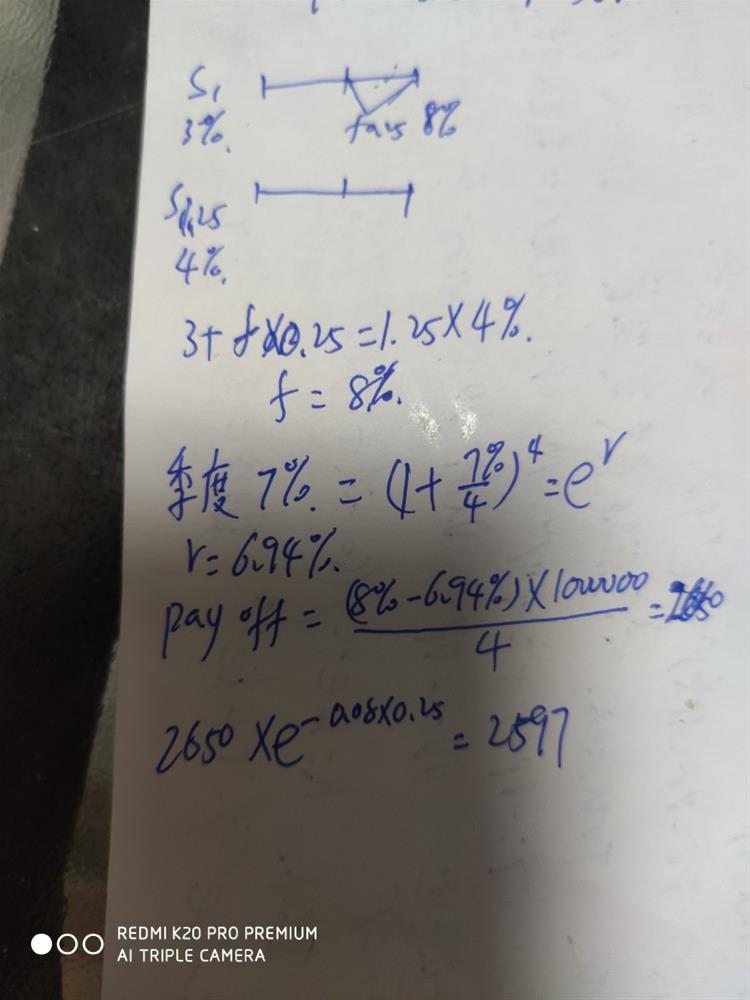 S₁
3%.
f0.25 8%
S1.25
4%.
3+ f×0.25=1.25×4%.
f = 8%.
季度 7%. = (1+ 7%/4)⁴ = e^r
r=6.94%.
pay off = (8%-6.94%)×1000000/4 = 2650
2650 ×e^-0.08×0.25 = 2597
REDMI K20 PRO PREMIUM
AI TRIPLE CAMERA